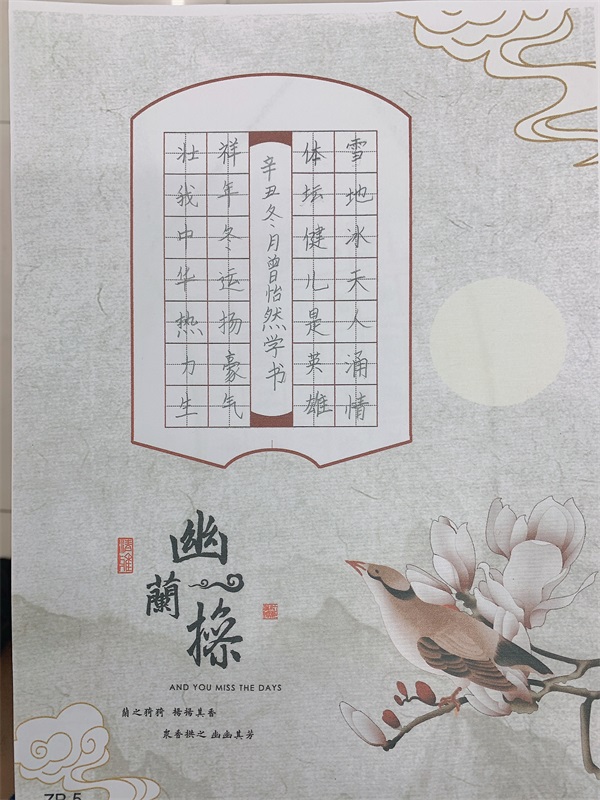 雪地冰天人涌情
体坛健儿是英雄
辛丑冬月曾怡然学书
祥年冬运扬豪气
壮我中华热力生
幽蘭操
AND YOU MISS THE DAYS
蘭之猗猗 揚揚其香
衆香拱之 幽幽其芳
ZP-5